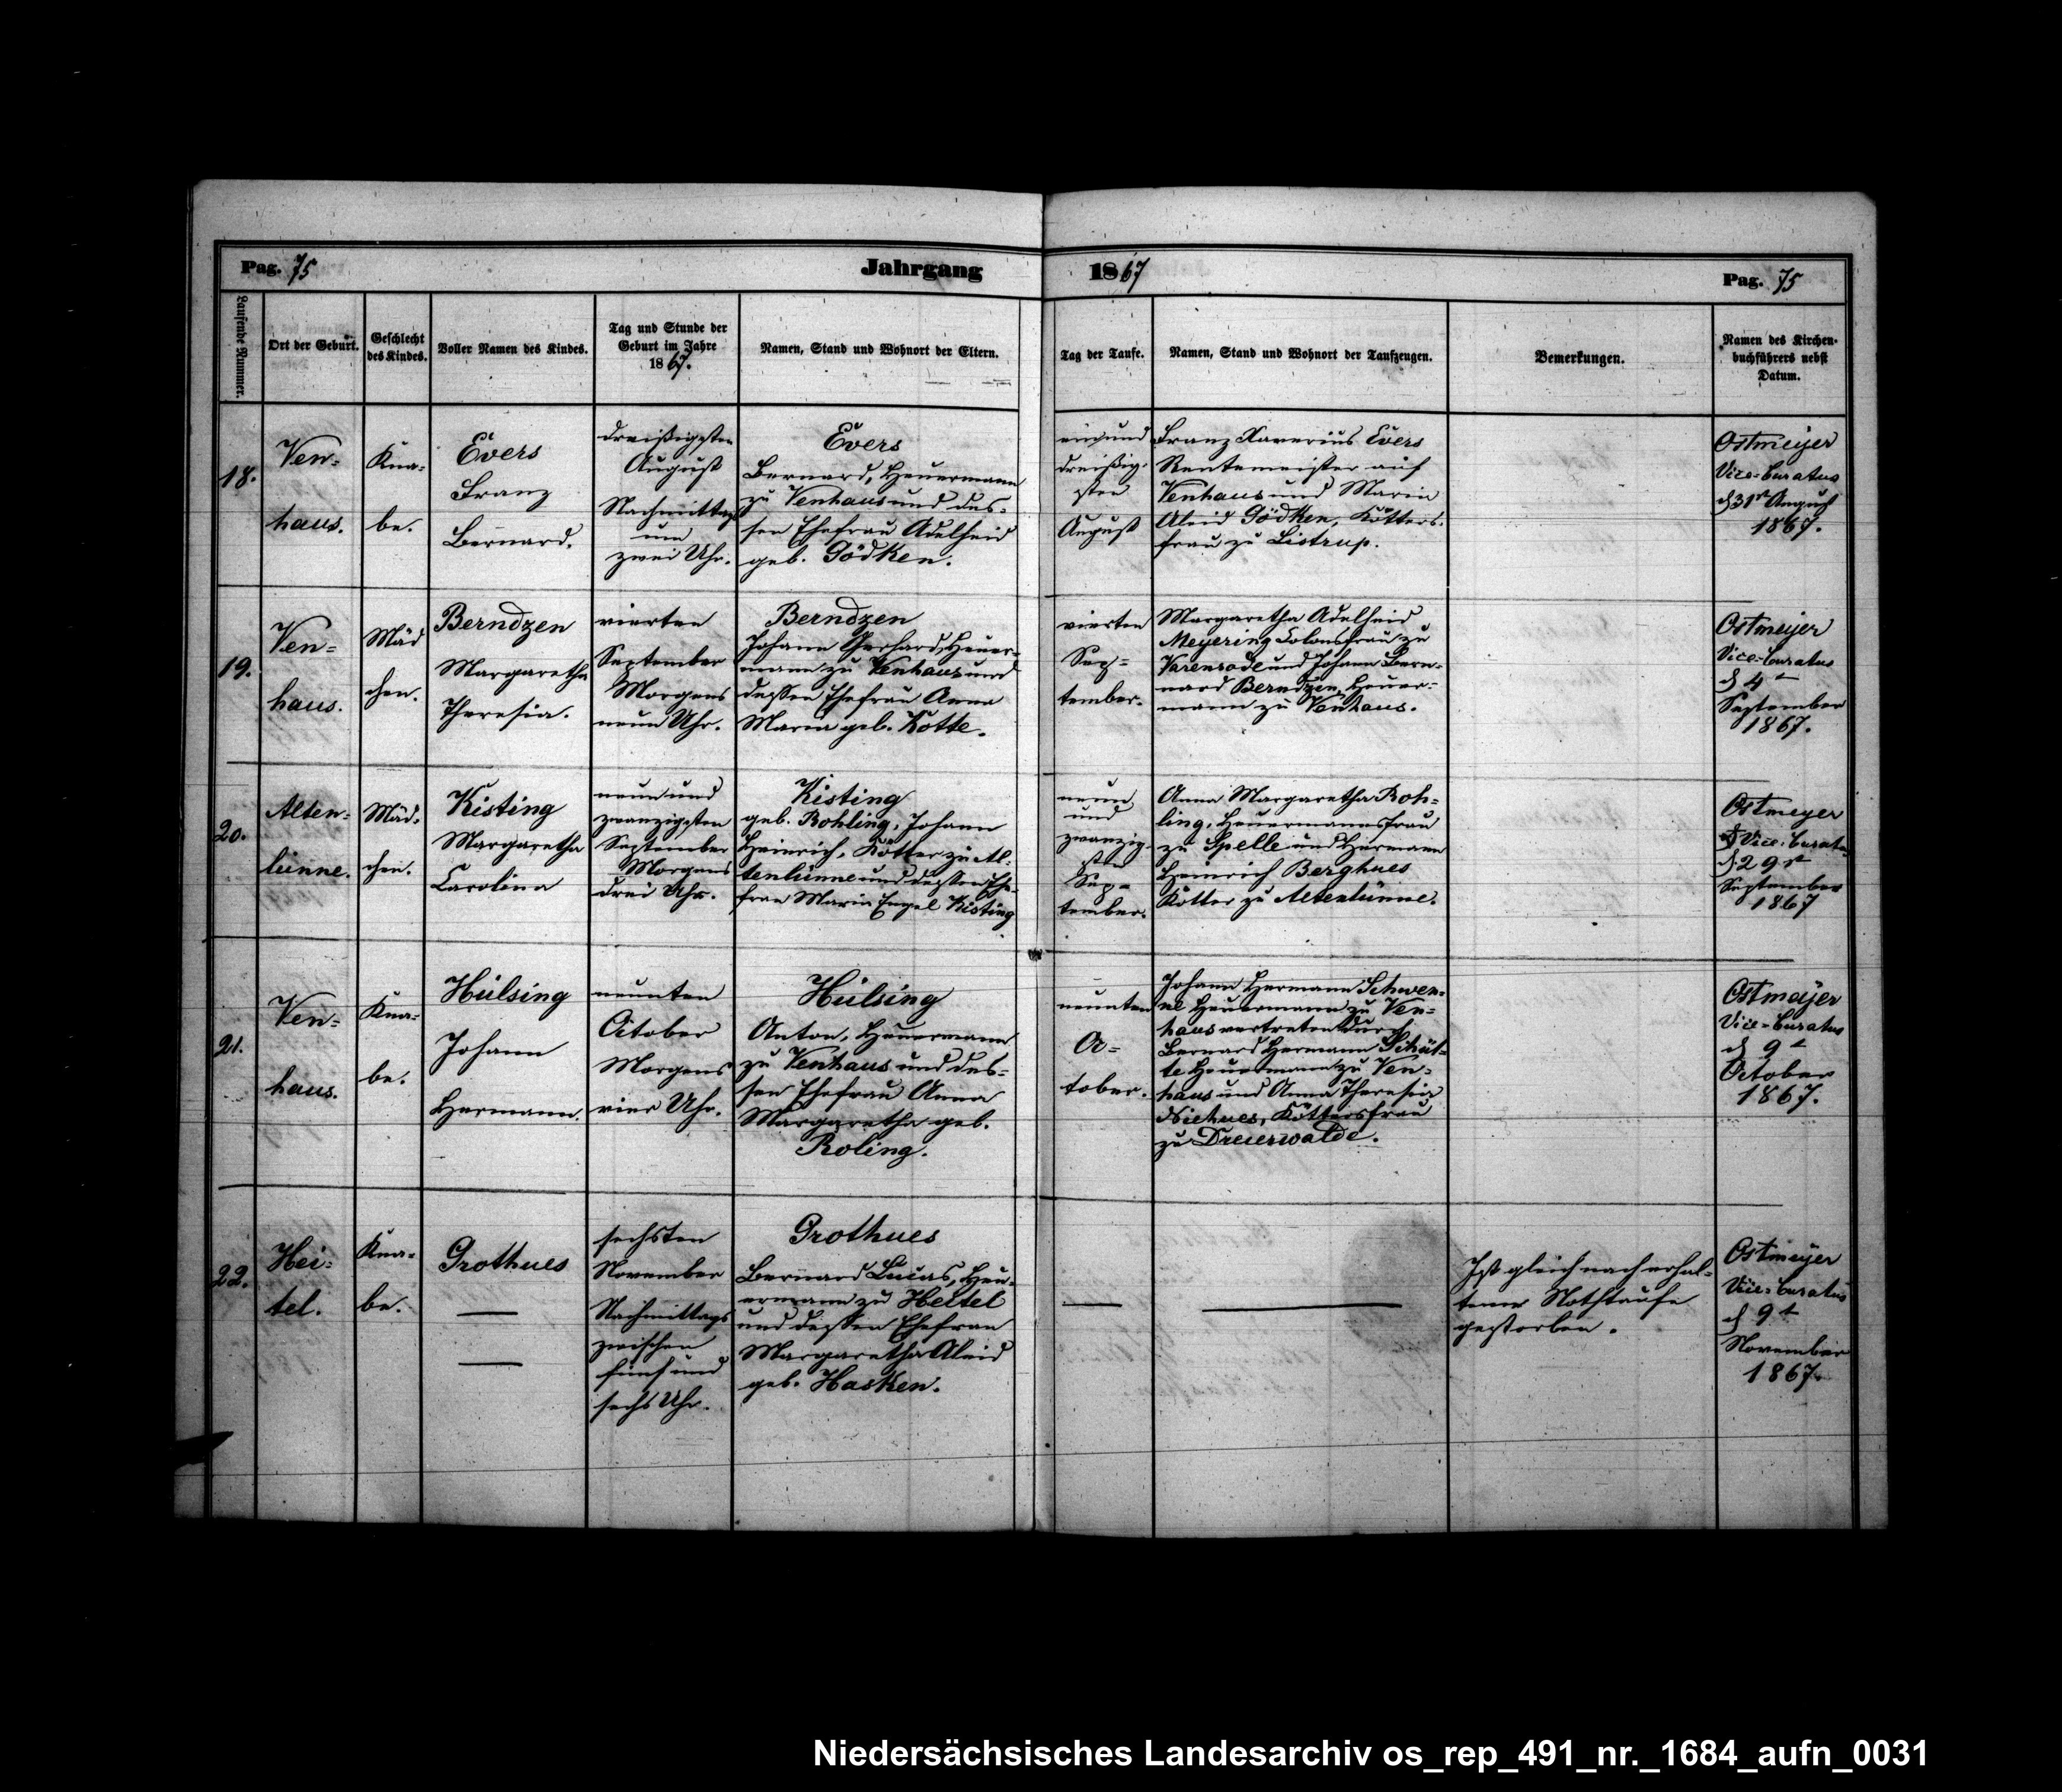 Pag. 75
Jahrgang
1867
Pag. 75
Laufende Nummer.
Ort der Geburt.
Geschlecht
des Kindes.
Voller Namen des Kindes.
Tag und Stunde der
Geburt im Jahre
1867.
Namen, Stand und Wohnort der Eltern.
Tag der Taufe.
Namen, Stand und Wohnort der Taufzeugen.
Bemerkungen.
Namen des Kirchen-
buchführers nebst
Datum.
18.
Ven-
haus.
Kna-
be.
Evers
Franz
Bernard.
dreißigsten
August
Nachmittags
um
zwei Uhr.
Evers
Bernard, Heuermann
zu Venhaus und des-
sen Ehefrau Adelheid
geb. Gödken.
einund
dreißig-
sten
August
Franz Xaverius Evers
Rentemeister auf
Venhaus und Maria
Aleid Gödken, Kötters-
frau zu Listrup.
Ostmeijer
Vice-Curatus
d 31st August
1867.
19.
Ven-
haus.
Mäd
chen.
Berndzen
Margaretha
Theresia.
vierten
September
Morgens
neun Uhr.
Berndzen
Johann Gerhard, Heuer-
mann zu Venhaus und
dessen Ehefrau Anna
Maria geb. Kotte.
vierten
Sep-
tember.
Margaretha Adelheid
Meyering Colonsfrau zu
Varenrode und Johann Bern-
nard Berndzen, Heuer-
mann zu Venhaus.
Ostmeijer
Vice-Curatus
d 4t
September
1867.
20.
Alten-
lünne.
Mäd-
chen.
Kisting
Margaretha
Carolina
neun und
zwanzigsten
September
Morgens
drei Uhr.
Kisting
geb. Rohling, Johann
Heinrich, Kötter zu Al-
tenlünne und dessen Ehe-
frau Maria Engel Kisting
neun
und
zwanzig-
sten
Sep-
tember.
Anna Margaretha Roh-
ling, Heuermannsfrau
zu Spelle und Hermann
Heinrich Berghues
Kötter zu Altenlünne.
Ostmeyer
Vice-Curatus
d 29st
September
1867
21.
Ven-
haus.
Kna-
be.
Hülsing
Johann
Hermann.
neunten
October
Morgens
vier Uhr.
Hülsing
Anton, Heuermann
zu Venhaus und des-
sen Ehefrau Anna
Margaretha geb.
Roling.
neunten
Oc-
tober.
Johann Hermann Schwen-
ne Heuermann zu Ven-
haus vertreten durch
Bernard Hermann Schüt-
te Heuermann zu Ven-
haus und Anna Theresia
Niehues, Köttersfrau
zu Dreierwalde.
Ostmeijer
Vice-Curatus
d 9t
October
1867.
22.
Hei-
tel.
Kna-
be.
Grothues
sechsten
November
Nachmittags
zwischen
fünf und
sechs Uhr.
Grothues
Bernard Lucas, Heu-
ermann zu Heitel
und dessen Ehefrau
Margaretha Aleid
geb. Hasken.
Ist gleich nach erhal-
tener Nothtaufe
gestorben.
Ostmeijer
Vice-Curatus
d 9t
November
1867.
Niedersächsisches Landesarchiv os_rep_491_nr._1684_aufn_0031